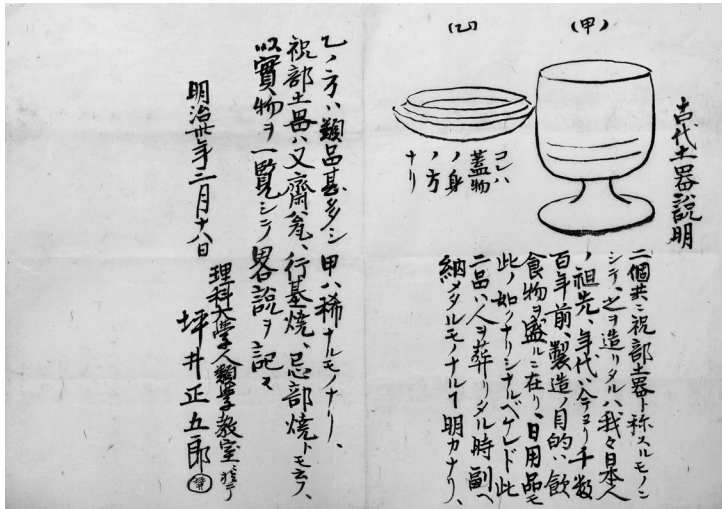 古代土器説明
(甲)
(乙)
コレハ
蓋物
ノ身
ノ方
ナリ
二個共ニ祝部土器ト称スルモノニ
シテ、之ヲ造リタルハ、我々日本人
ノ祖先、年代ハ今ヨリ千数
百年前、製造ノ目的ハ飲
食物ヲ盛ルニ在リ、日用品モ
此ノ如クナリシナルベケレド此
二品ハ人ヲ葬リタル時副ヘ
納メタルモノナルヿ明カナリ、
乙ノ方ハ類品甚多シ甲ハ稀ナルモノナリ、
祝部土器ハ又齋瓮、行基焼、忌部焼トモ云フ、
以實物ヲ一覧シテ畧説ヲ記ス
明治卅年二月十八日
理科大學人類學教室ニ於テ
坪井正五郎